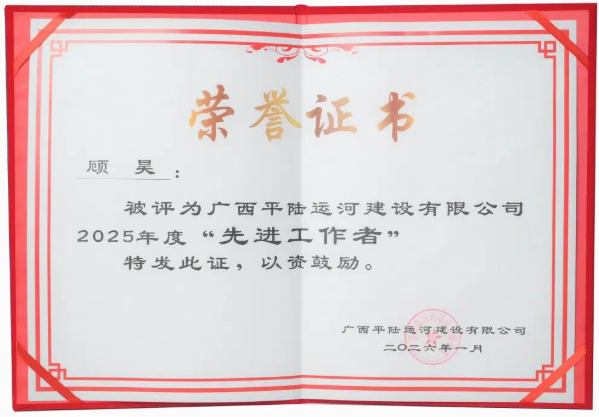 荣誉证书
顾 昊：
被评为广西平陆运河建设有限公司
2025年度“先进工作者”
特发此证，以资鼓励。
广西平陆运河建设有限公司
二〇二六年一月